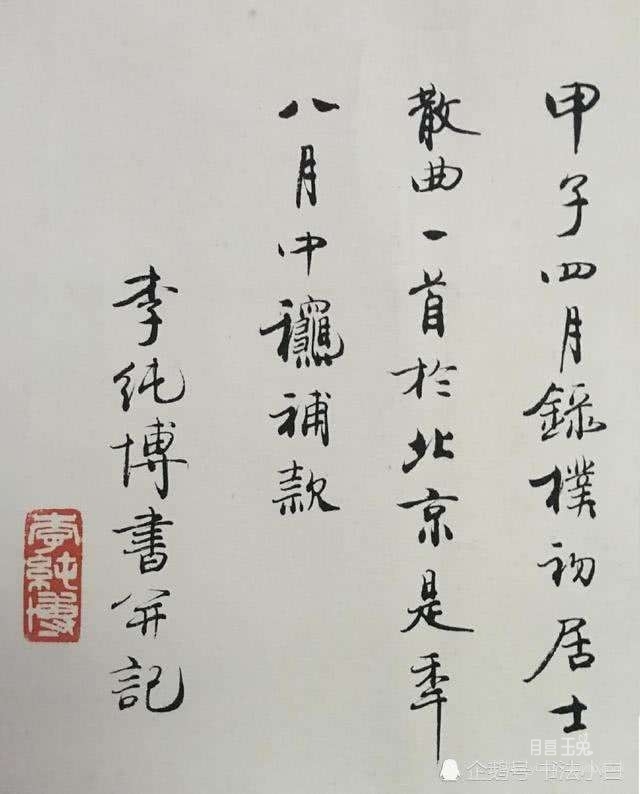 甲子四月錄樸初居士
散曲一首於北京是年
八月中龝補款
李純博書并記
李純博
企鹅号 书法小白